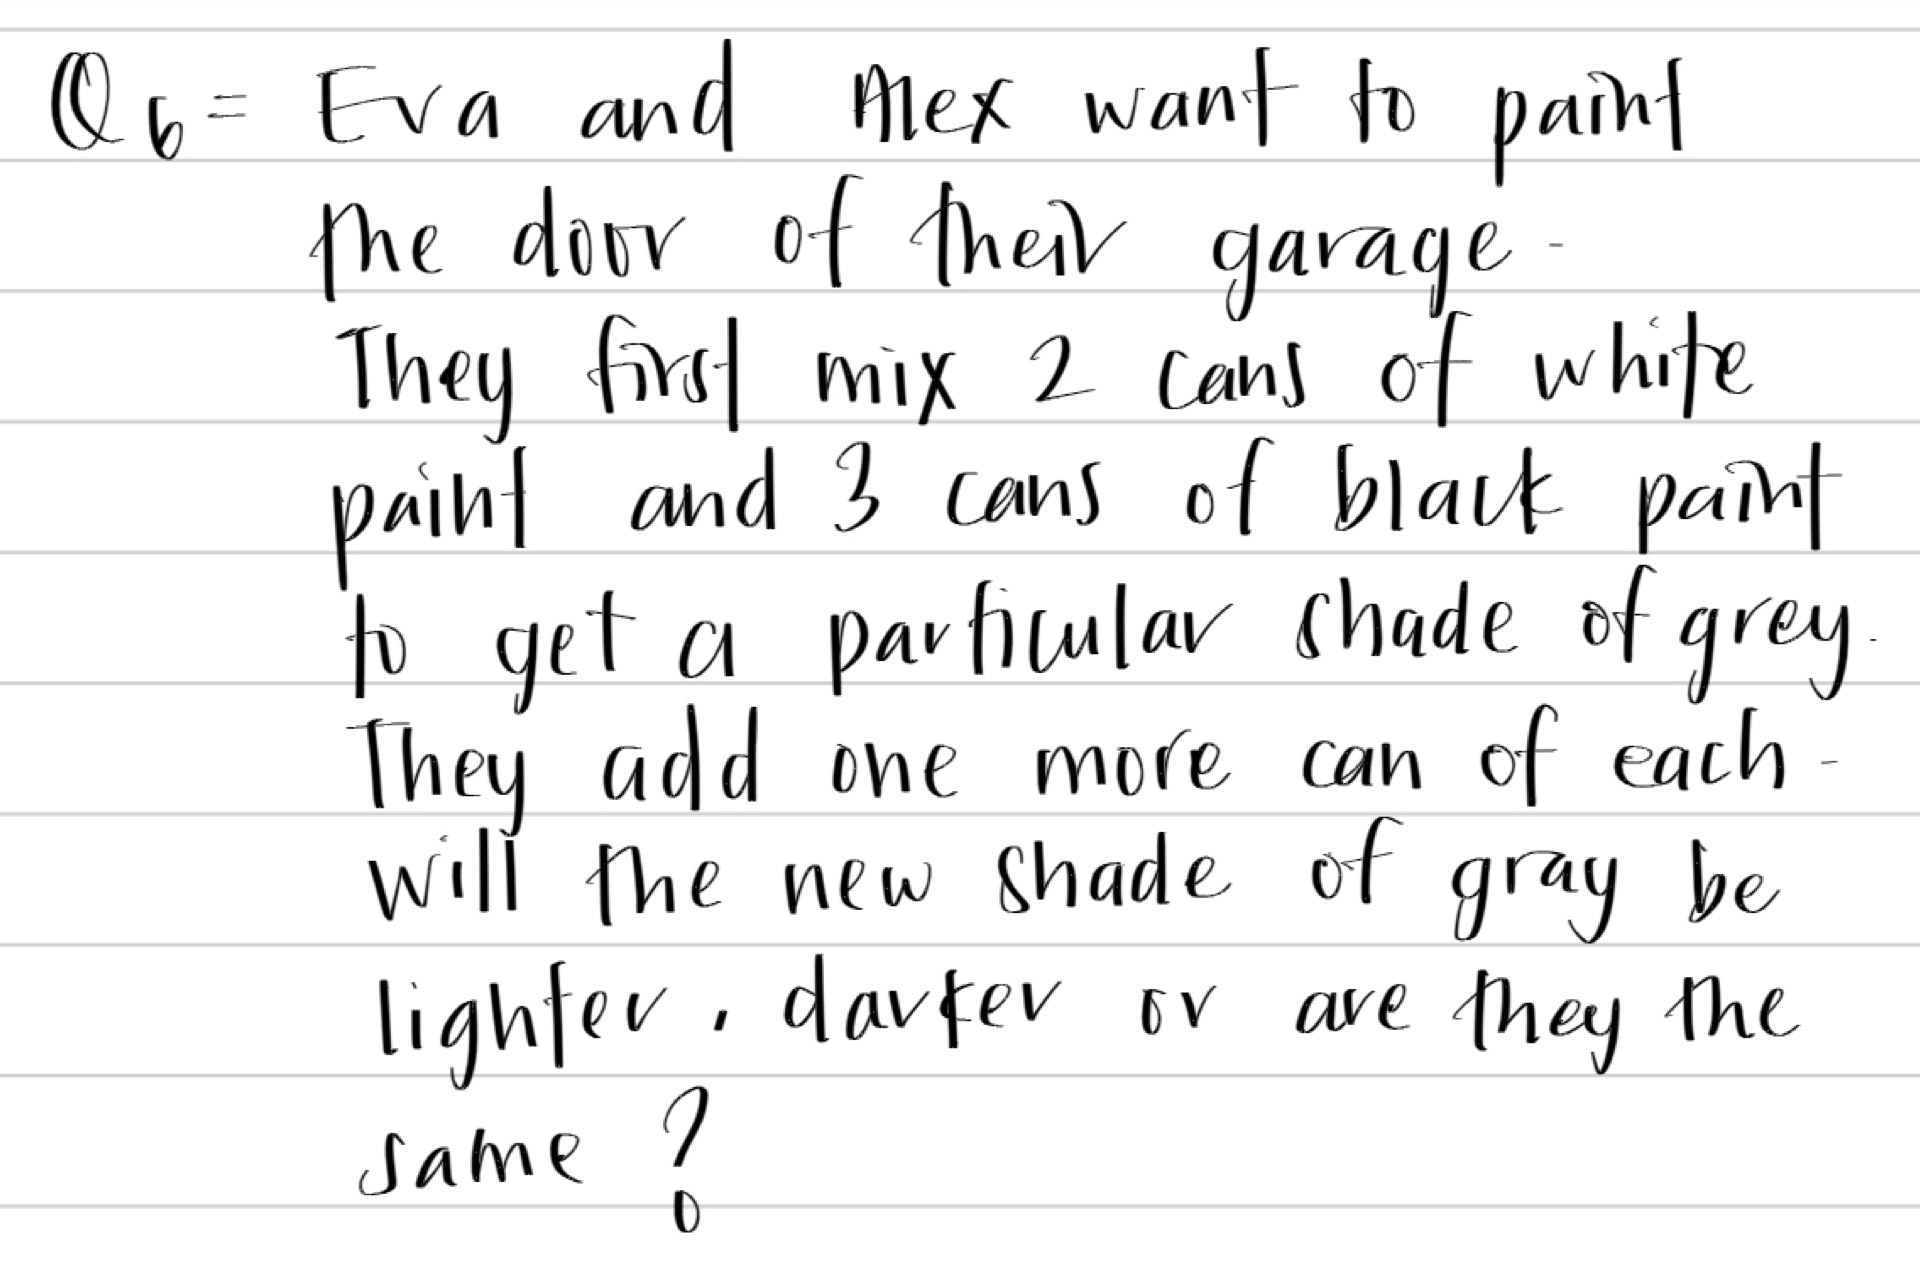 Q6= Eva and Alex want to paint
the door of their garage.
They first mix 2 cans of white
paint and 3 cans of black paint
to get a particular shade of grey.
They add one more can of each.
will the new shade of gray be
lighter, darker or are they the
same?